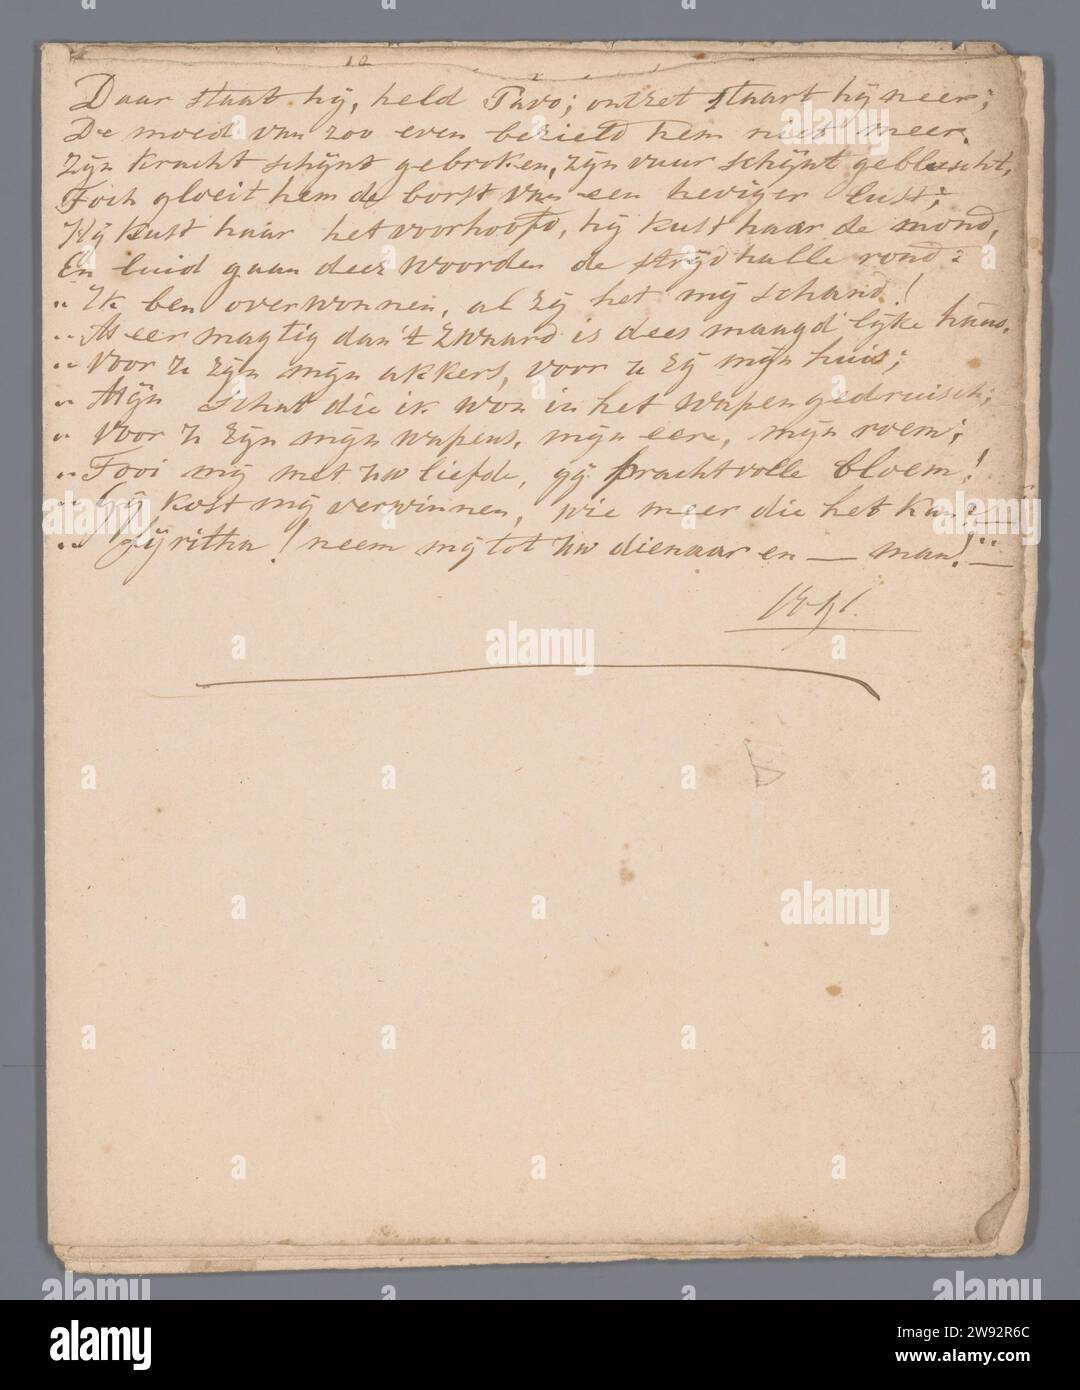 Daar staat hij, held Thvo; ontzet staart hij neer;
De moed van zoo even bezield hem niet meer.
Zijn kracht schijnt gebroken, zijn vuur schijnt gebluscht,
Toch gloeit hem de borst van een heviger lust;
Hij kust haar het voorhoofd, hij kust haar de mond,
En luid gaan deez woorden de strijdhalle rond:
„Ik ben overwonnen, al zij het mij schand!
„Meer magtig dan 't zwaard is dees maagd'lijke hand.
„Voor U zijn mijn akkers, voor U zij mijn huis;
„Mijn schat die ik won in het wapengedruisch;
„Voor U zijn mijn wapens, mijn eere, mijn roem;
„Tooi mij met Uw liefde, gij prachtvolle bloem!
„Gij kost mij verwinnen, wie meer die het kan? —
„Jyritha! neem mij tot Uw dienaar en — man!" —
alamy
Image ID: 2W92R6C
www.alamy.com